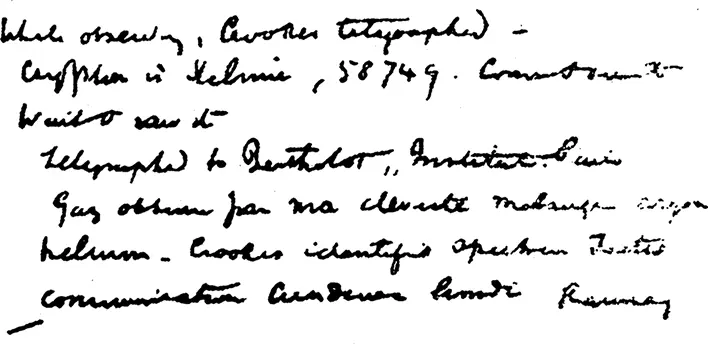 While observing, Crookes telegraphed –
Crypton is Helium, 58749. Come and see it
Went & saw it
Telegraphed to Berthelot, Institut. Paris
Gaz obtenu par moi cleveite melange argon
helium – Crookes identifie spectre Faites
communication Academie lundi Ramsay